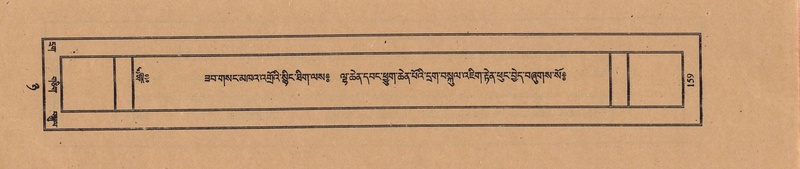 ༄༅།
ཟབ་གསང་མཁའ་འགྲོའི་སྙིང་ཐིག་ལས༔ ལྷ་ཆེན་དབང་ཕྱུག་ཆེན་པོའི་དྲག་བསྐུལ་འཇིག་རྟེན་ཕུང་བྱེད་བཞུགས་སོ༔
159